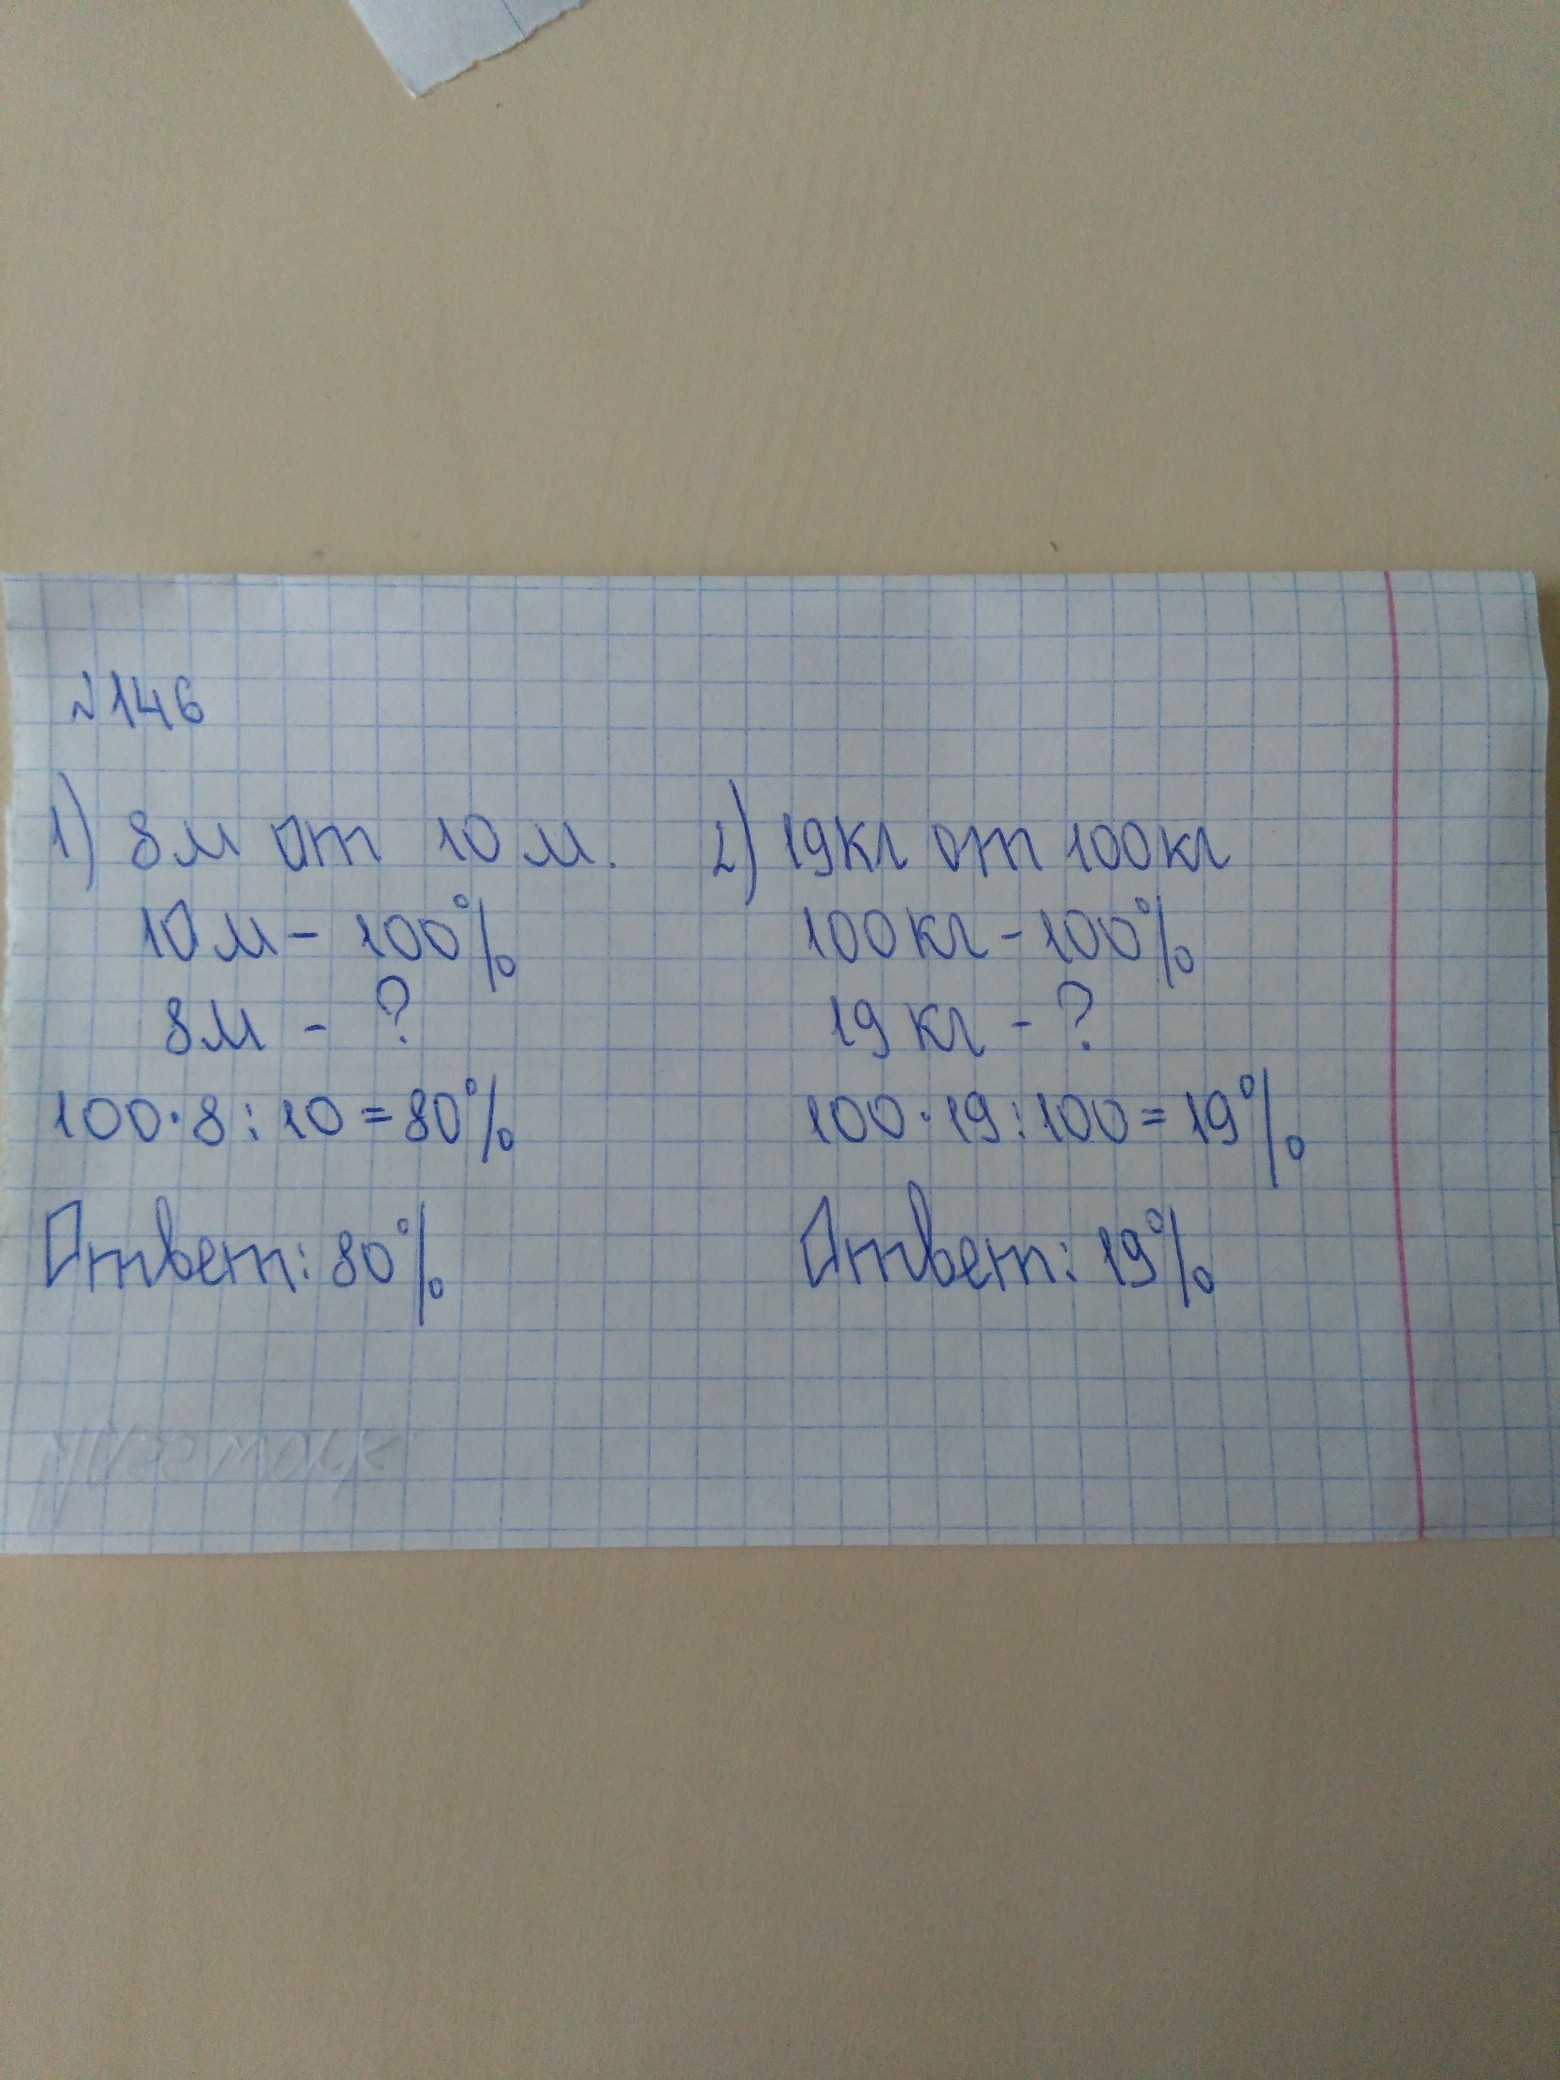 №146
1) 8м от 10 м.
10м - 100%
8м - ?
100·8:10=80%
Ответ: 80%
2) 19кг от 100кг
100кг - 100%
19 кг - ?
100·19:100=19%
Ответ: 19%